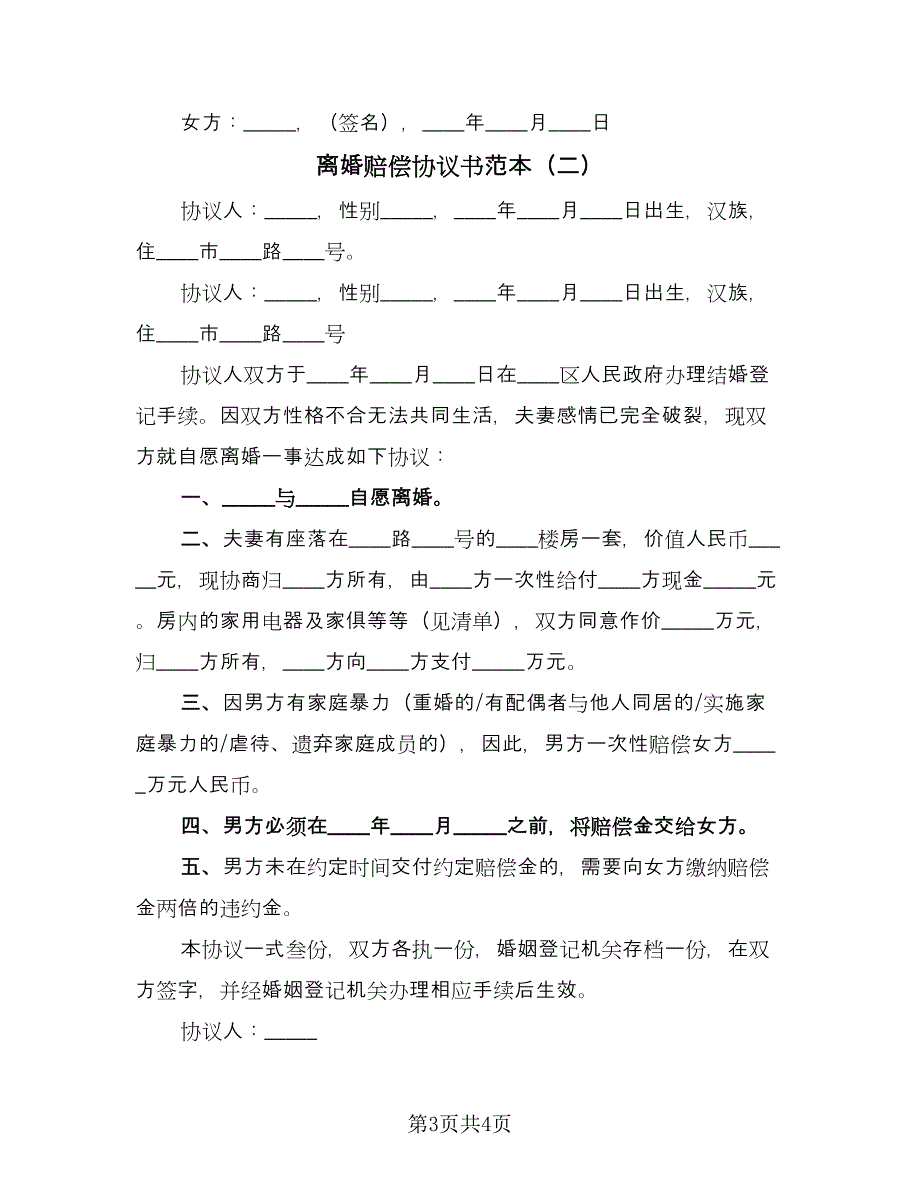 女方：_____，（签名），____年____月____日
离婚赔偿协议书范本（二）
协议人：_____，性别_____，____年____月____日出生，汉族，
住____市____路____号。
协议人：_____，性别_____，____年____月____日出生，汉族，
住____市____路____号
协议人双方于____年____月____日在____区人民政府办理结婚登
记手续。因双方性格不合无法共同生活，夫妻感情已完全破裂，现双
方就自愿离婚一事达成如下协议：
一、_____与_____自愿离婚。
二、夫妻有座落在____路____号的____楼房一套，价值人民币___
__元，现协商归____方所有，由____方一次性给付____方现金_____元
。房内的家用电器及家俱等等（见清单），双方同意作价_____万元，
归____方所有，____方向____方支付_____万元。
三、因男方有家庭暴力（重婚的/有配偶者与他人同居的/实施家
庭暴力的/虐待、遗弃家庭成员的），因此，男方一次性赔偿女方____
_万元人民币。
四、男方必须在____年____月_____之前，将赔偿金交给女方。
五、男方未在约定时间交付约定赔偿金的，需要向女方缴纳赔偿
金两倍的违约金。
本协议一式叁份，双方各执一份，婚姻登记机关存档一份，在双
方签字，并经婚姻登记机关办理相应手续后生效。
协议人：_____
第3页共4页